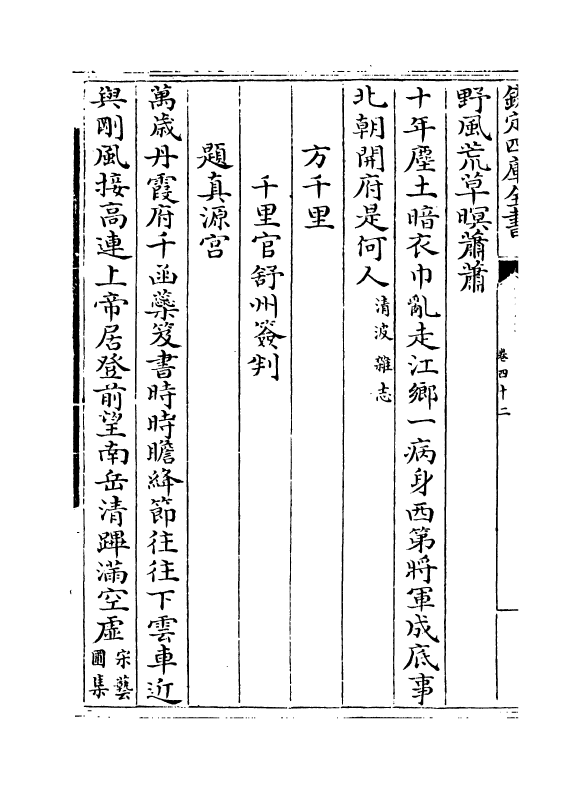 欽定四庫全書
卷四十二
野風荒草暝蕭蕭
十年塵土暗衣巾亂走江鄉一病身西第將軍成底事
北朝開府是何人清波雜志
方千里
千里官舒州簽判
題真源宫
萬歳丹霞府千函蘂笈書時時瞻絳節往往下雲車近
與剛風接高連上帝居登前望南岳清蹕滿空虛宋藝圃集